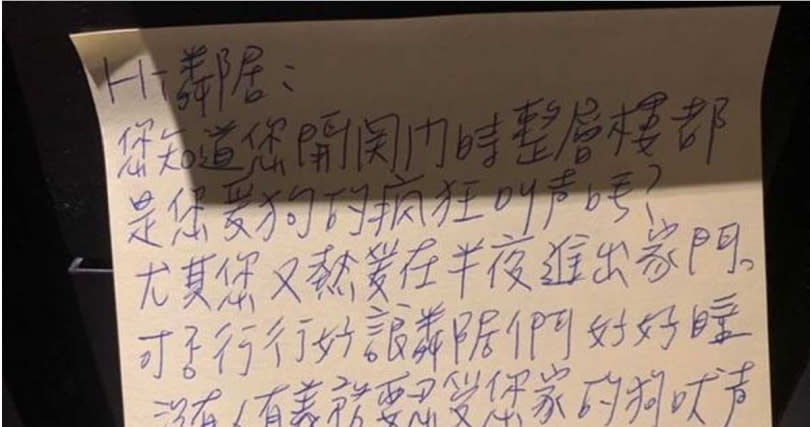 Hi 鄰居：
您知道您開関门時整層樓都
是您愛狗的疯狂叫声嗎？
尤其您又熱愛在半夜進出家門。
可否行行好讓鄰居們好好睡
沒有人有義務要忍受您家的狗吠声